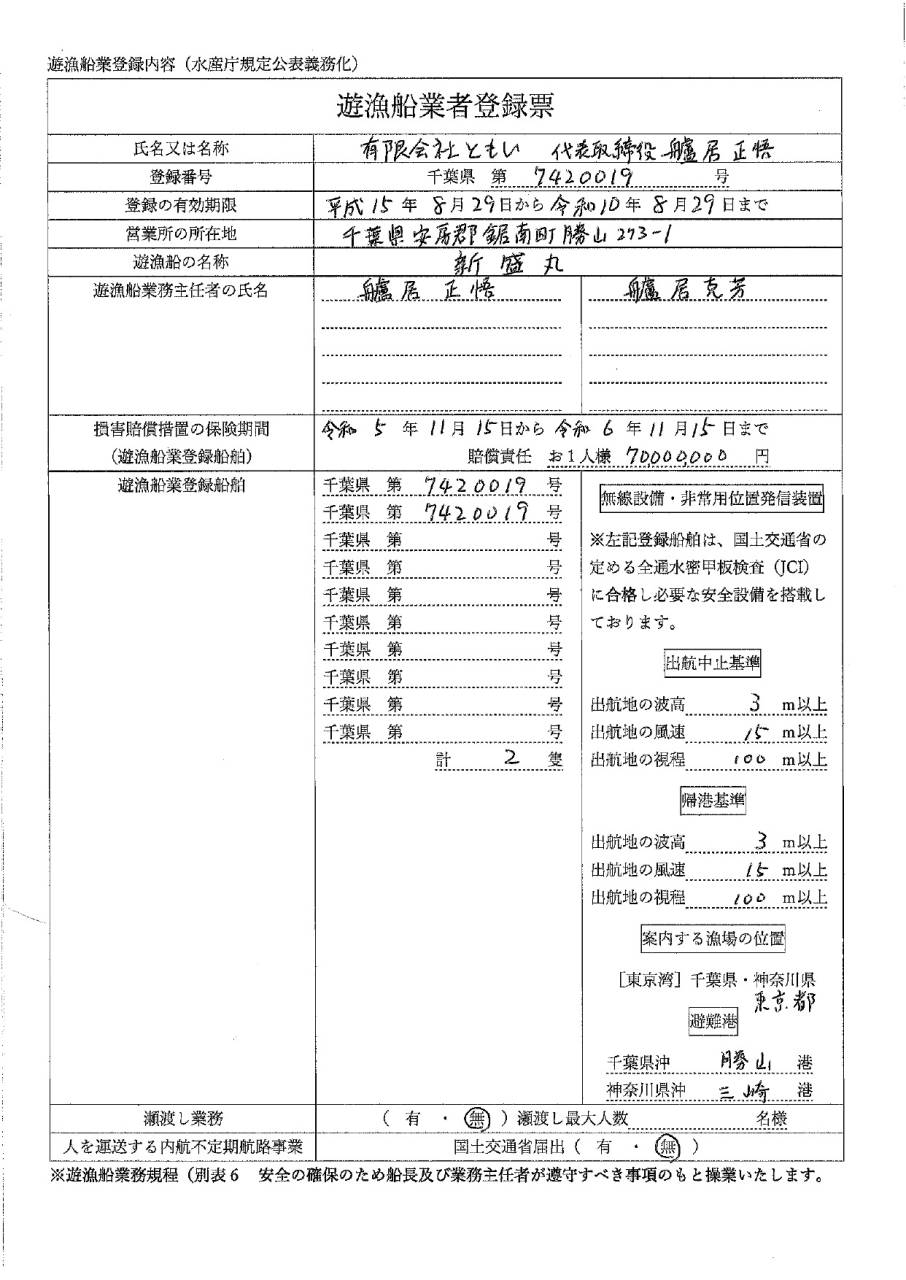 遊漁船業登録内容（水産庁規定公表義務化）
遊漁船業者登録票
氏名又は名称 有限会社ともい 代表取締役 艫居 正悟
登録番号 千葉県 第 7420019 号
登録の有効期限 平成15年8月29日から令和10年8月29日まで
営業所の所在地 千葉県安房郡鋸南町勝山273-1
遊漁船の名称 新盛丸
遊漁船業務主任者の氏名 艫居 正悟 艫居克芳
損害賠償措置の保険期間 令和 5 年 11月 15日から 令和 6 年 11月15日まで
（遊漁船業登録船舶） 賠償責任 お1人様 70000,000 円
遊漁船業登録船舶 千葉県 第 7420019 号
千葉県 第 7420019 号
千葉県 第 号
千葉県 第 号
千葉県 第 号
千葉県 第 号
千葉県 第 号
千葉県 第 号
千葉県 第 号
千葉県 第 号
計 2 隻
無線設備・非常用位置発信装置
※左記登録船舶は、国土交通省の
定める全通水密甲板検査（JCI）
に合格し必要な安全設備を搭載し
ております。
出航中止基準
出航地の波高 3 m以上
出航地の風速 15 m以上
出航地の視程 100 m以上
帰港基準
出航地の波高 3 m以上
出航地の風速 15 m以上
出航地の視程 100 m以上
案内する漁場の位置
［東京湾］千葉県・神奈川県
東京都
避難港
千葉県沖 勝山 港
神奈川県沖 三崎 港
瀬渡し業務 （ 有 ・ 無 ）瀬渡し最大人数 名様
人を運送する内航不定期航路事業 国土交通省届出（ 有 ・ 無 ）
※遊漁船業務規程（別表6 安全の確保のため船長及び業務主任者が遵守すべき事項のもと操業いたします。